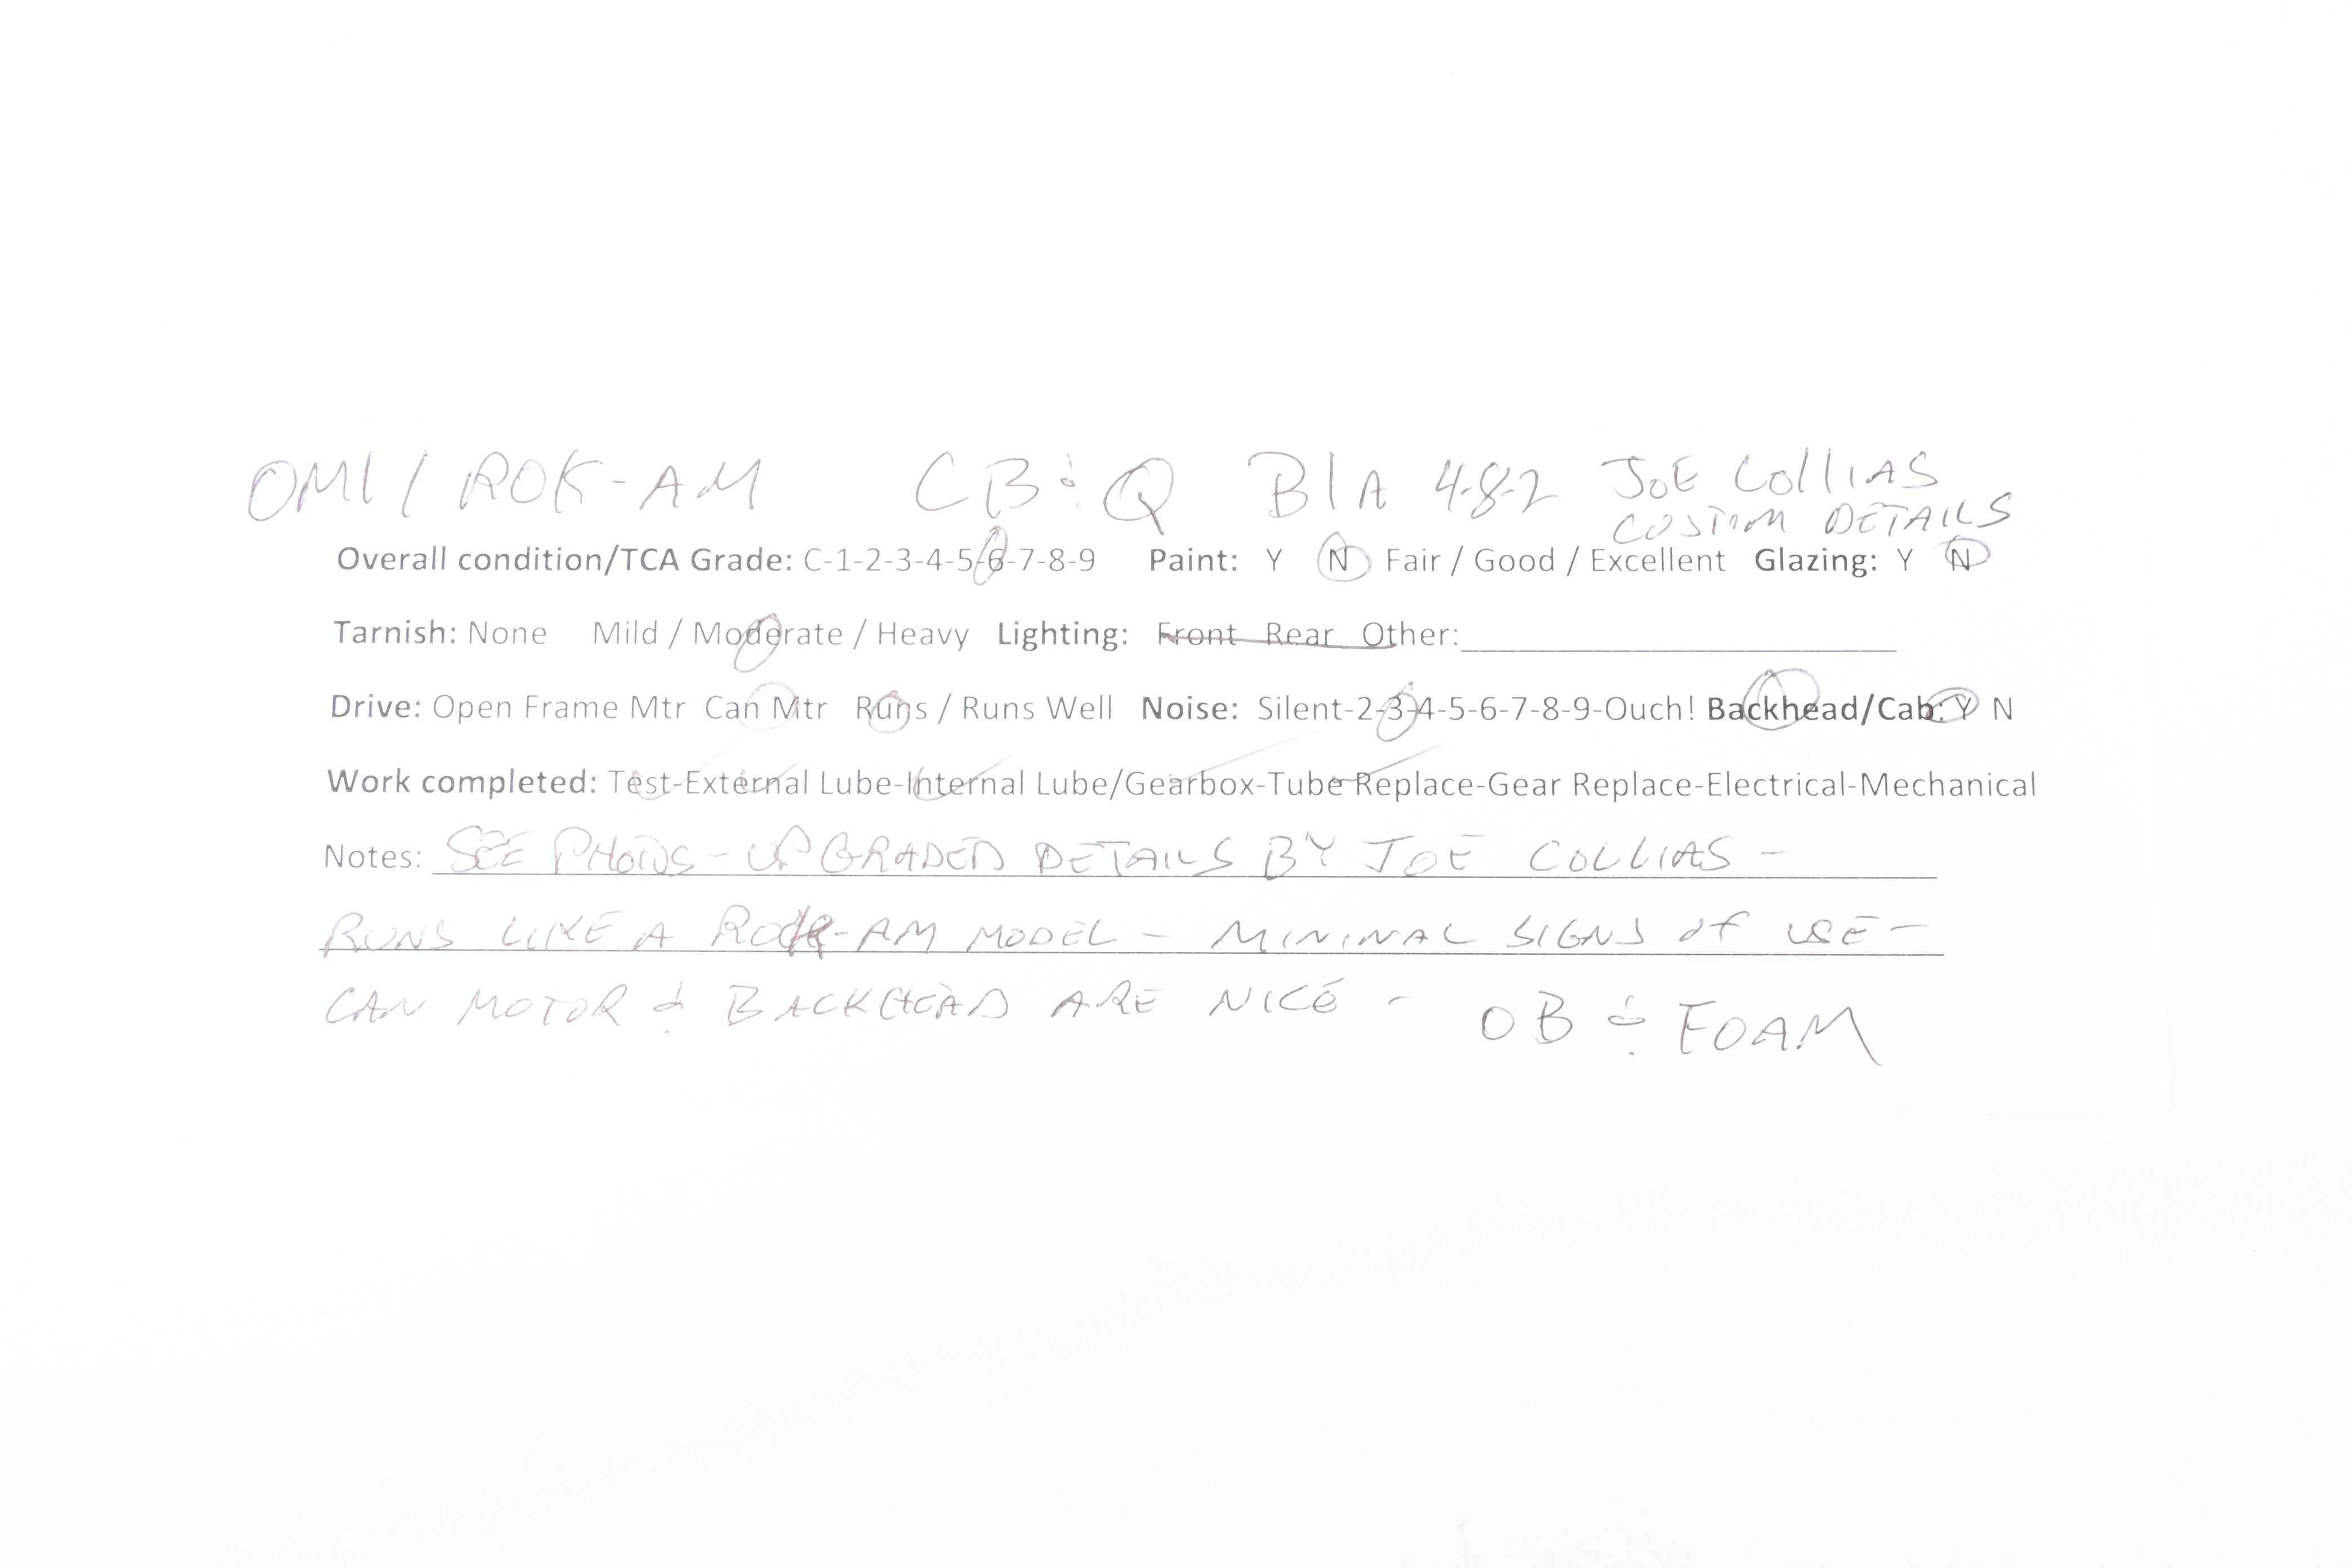 OMI / ROK-AM CB&Q B1A 4-8-2 JOE COLLIAS
CUSTOM DETAILS
Overall condition/TCA Grade: C-1-2-3-4-5-6-7-8-9 Paint: Y N Fair / Good / Excellent Glazing: Y N
Tarnish: None Mild / Moderate / Heavy Lighting: Front Rear Other:
Drive: Open Frame Mtr Can Mtr Runs / Runs Well Noise: Silent-2-3-4-5-6-7-8-9-Ouch! Backhead/Cab: Y N
Work completed: Test-External Lube-Internal Lube/Gearbox-Tube Replace-Gear Replace-Electrical-Mechanical
Notes: SEE PHOTOS - UPGRADED DETAILS BY JOE COLLIAS -
RUNS LIKE A ROK-AM MODEL - MININAL SIGNS OF USE -
CAN MOTOR & BACKHEAD ARE NICE - OB & FOAM